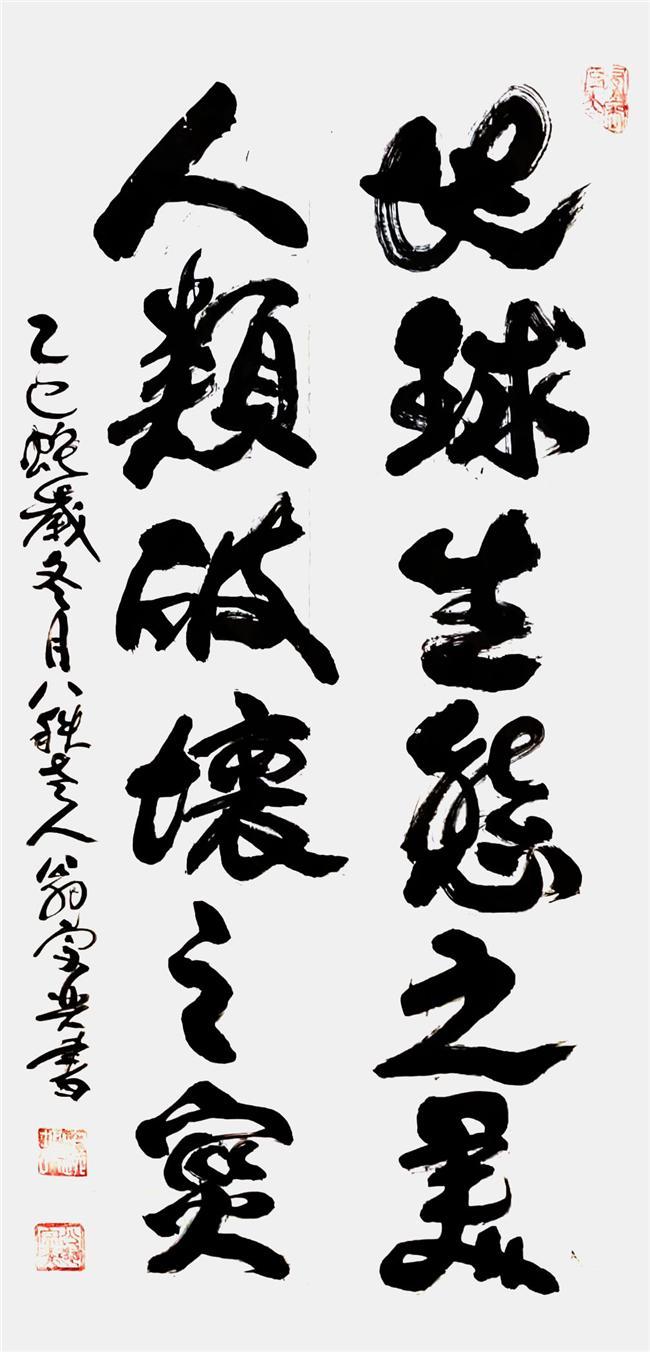 地球生態之
人類破壞之
乙巳蛇歲冬月八秩老人翁書